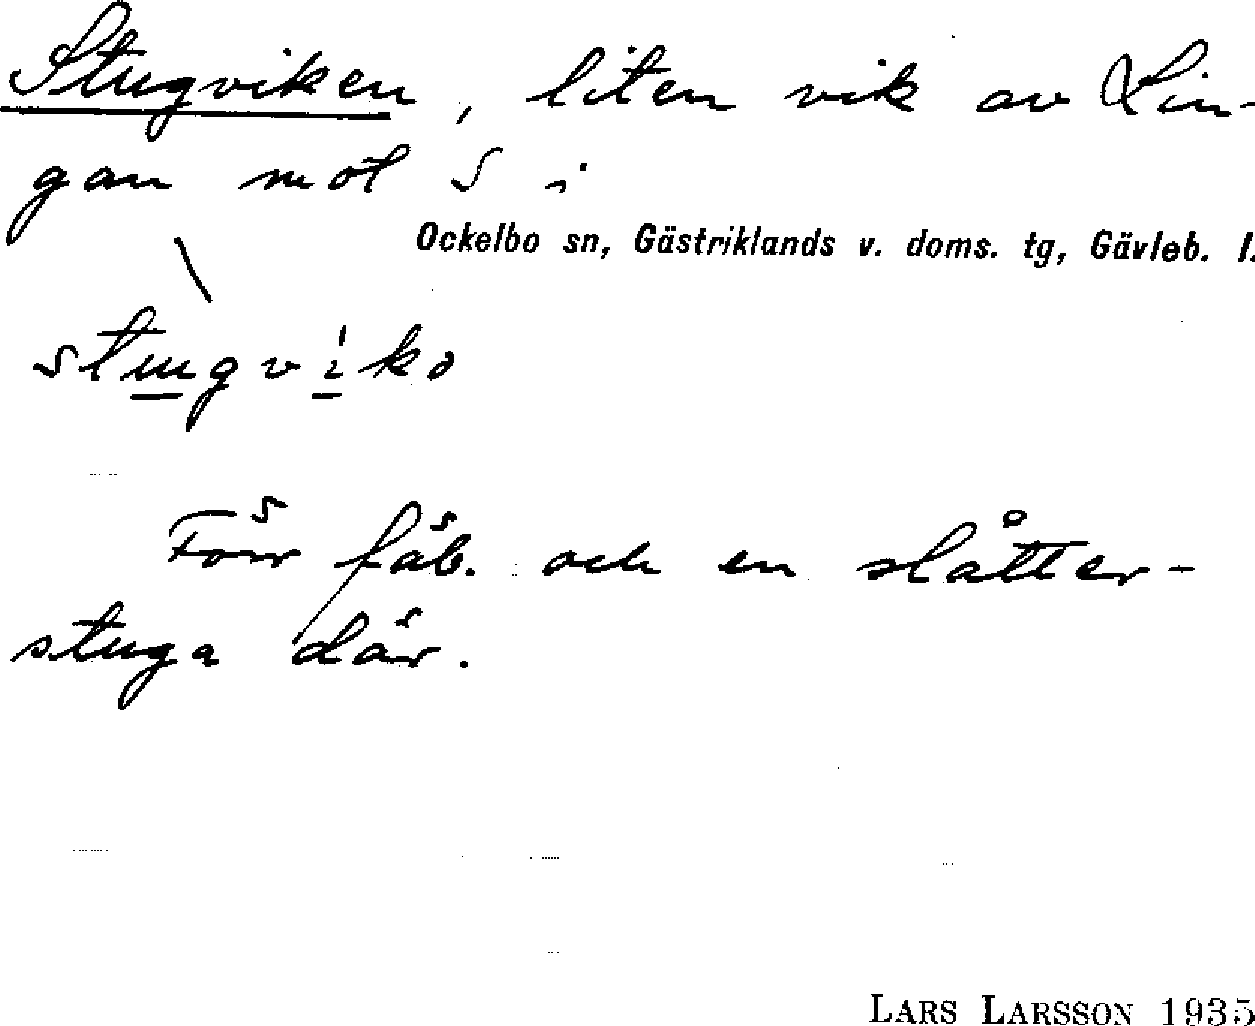 Stugviken, liten vik av Lin-
gan mot S i
Ockelbo sn, Gästriklands v. doms. tg, Gävleb. l.
stugviko
Förr fäb. och en slåtter-
stuga där.
LARS LARSSON 1935